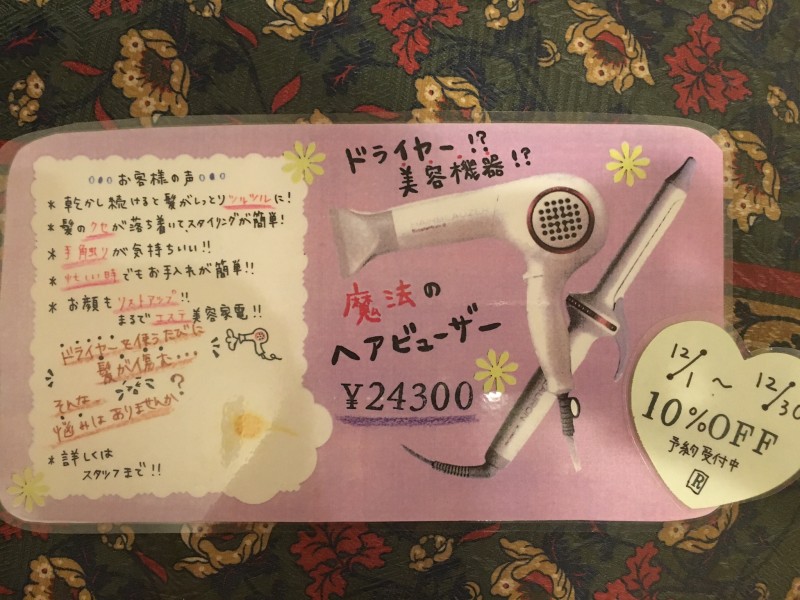 お客様の声
* 乾かし続けると髪がしっとりツルツルに!
* 髪のクセが落ち着いてスタイリングが簡単!
* 手触りが気持ちいい!!
* 忙しい時でもお手入れが簡単!!
* お顔もリフトアップ!!
まるでエステ美容家電!!
ドライヤーを使うたびに
髪が傷む…
そんな
悩みはありませんか?
* 詳しくは
スタッフまで!!
ドライヤー!?
美容機器!?
魔法の
ヘアビューザー
¥24300
12/1 ~ 12/30
10%OFF
予約受付中
R